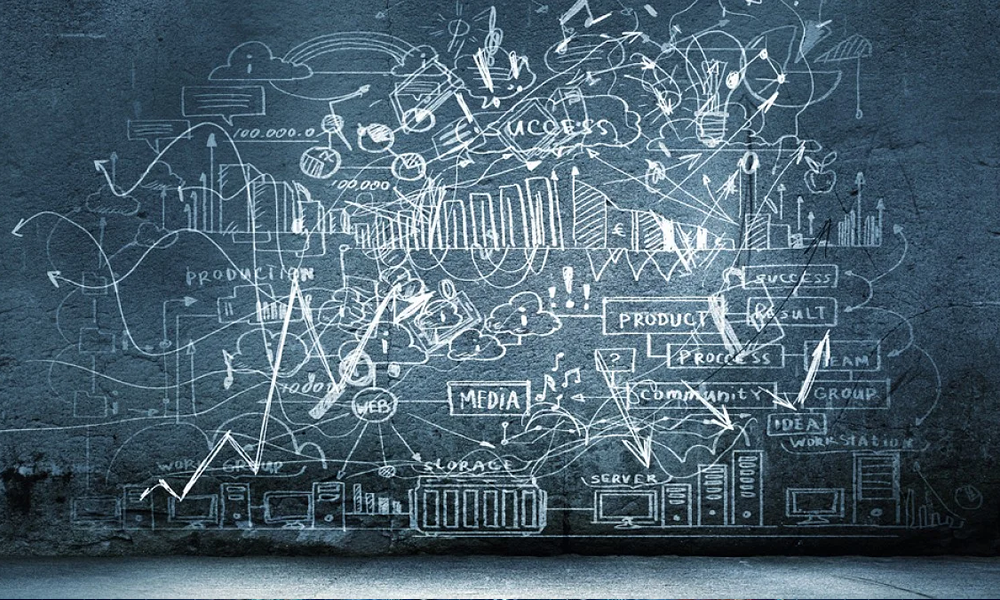 100.000.0
SUCCESS
100.000
€
PRODUCTION
SUCCESS
!!!
PRODUCT
RESULT
PROCCESS
TEAM
?
MEDIA
Community
GROUP
WEB
IDEA
WORKSTATION
WORK GROUP
STORAGE
SERVER